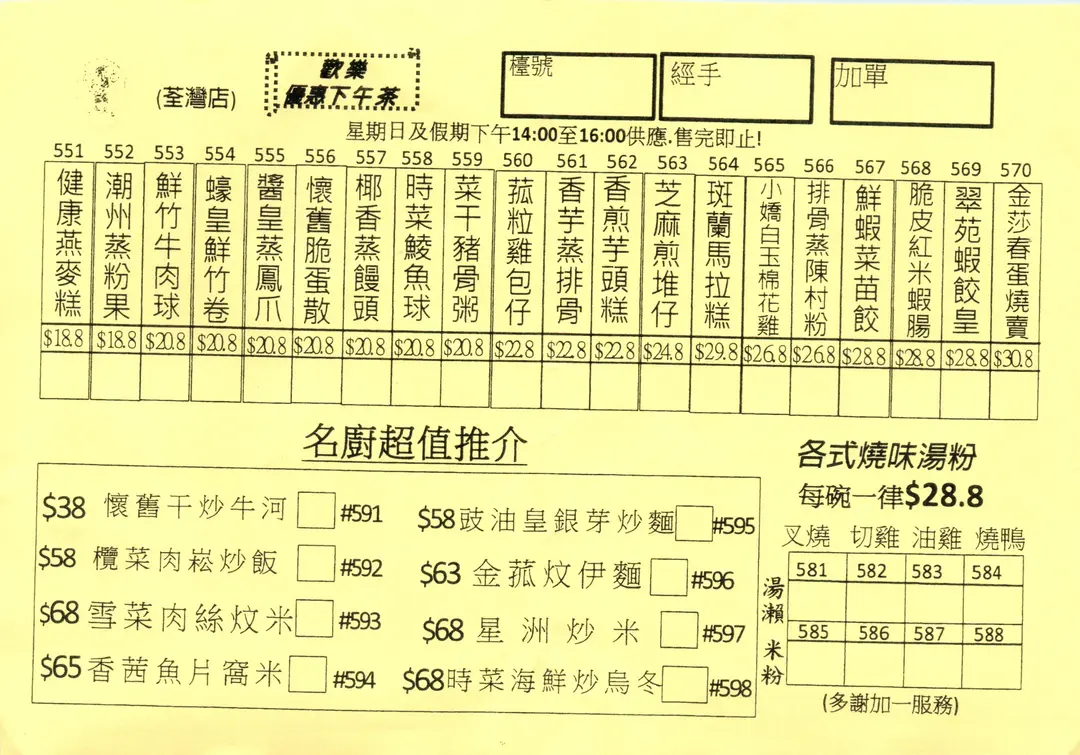 (荃灣店)
歡樂
優惠下午茶
檯號
經手
加單
星期日及假期下午14:00至16:00供應.售完即止!
551 552 553 554 555 556 557 558 559 560 561 562 563 564 565 566 567 568 569 570
健康燕麥糕
潮州蒸粉果
鮮竹牛肉球
蠔皇鮮竹卷
醬皇蒸鳳爪
懷舊脆蛋散
椰香蒸饅頭
時菜鯪魚球
菜干豬骨粥
菰粒雞包仔
香芋蒸排骨
香煎芋頭糕
芝麻煎堆仔
斑蘭馬拉糕
小嬌白玉棉花雞
排骨蒸陳村粉
鮮蝦菜苗餃
脆皮紅米蝦腸
翠苑蝦餃皇
金莎春蛋燒賣
$18.8 $18.8 $20.8 $20.8 $20.8 $20.8 $20.8 $20.8 $20.8 $22.8 $22.8 $22.8 $24.8 $29.8 $26.8 $26.8 $28.8 $28.8 $28.8 $30.8
名廚超值推介
$38 懷舊干炒牛河 #591
$58 欖菜肉崧炒飯 #592
$68 雪菜肉絲炆米 #593
$65 香茜魚片窩米 #594
$58 豉油皇銀芽炒麵 #595
$63 金菰炆伊麵 #596
$68 星洲炒米 #597
$68 時菜海鮮炒烏冬 #598
各式燒味湯粉
每碗一律$28.8
叉燒 切雞 油雞 燒鴨
湯瀨 581 582 583 584
米粉 585 586 587 588
(多謝加一服務)